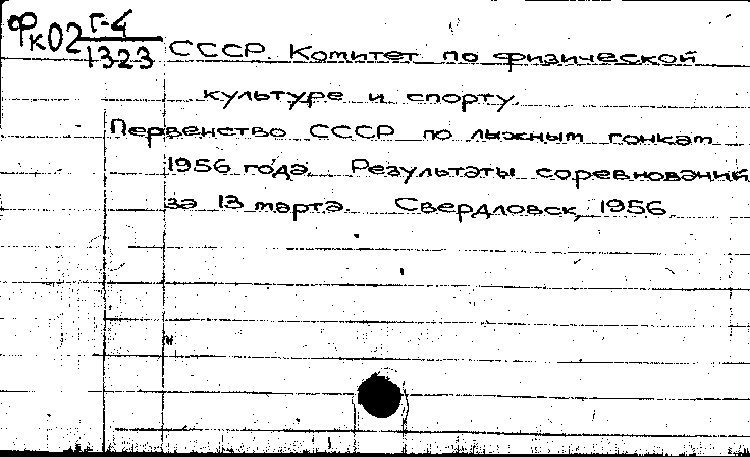 Фк02 Г-4
1323
СССР. Комитет по физической
культуре и спорту.
Первенство СССР по лыжным гонкам
1956 года. Результаты соревнований
за 13 марта. Свердловск, 1956.